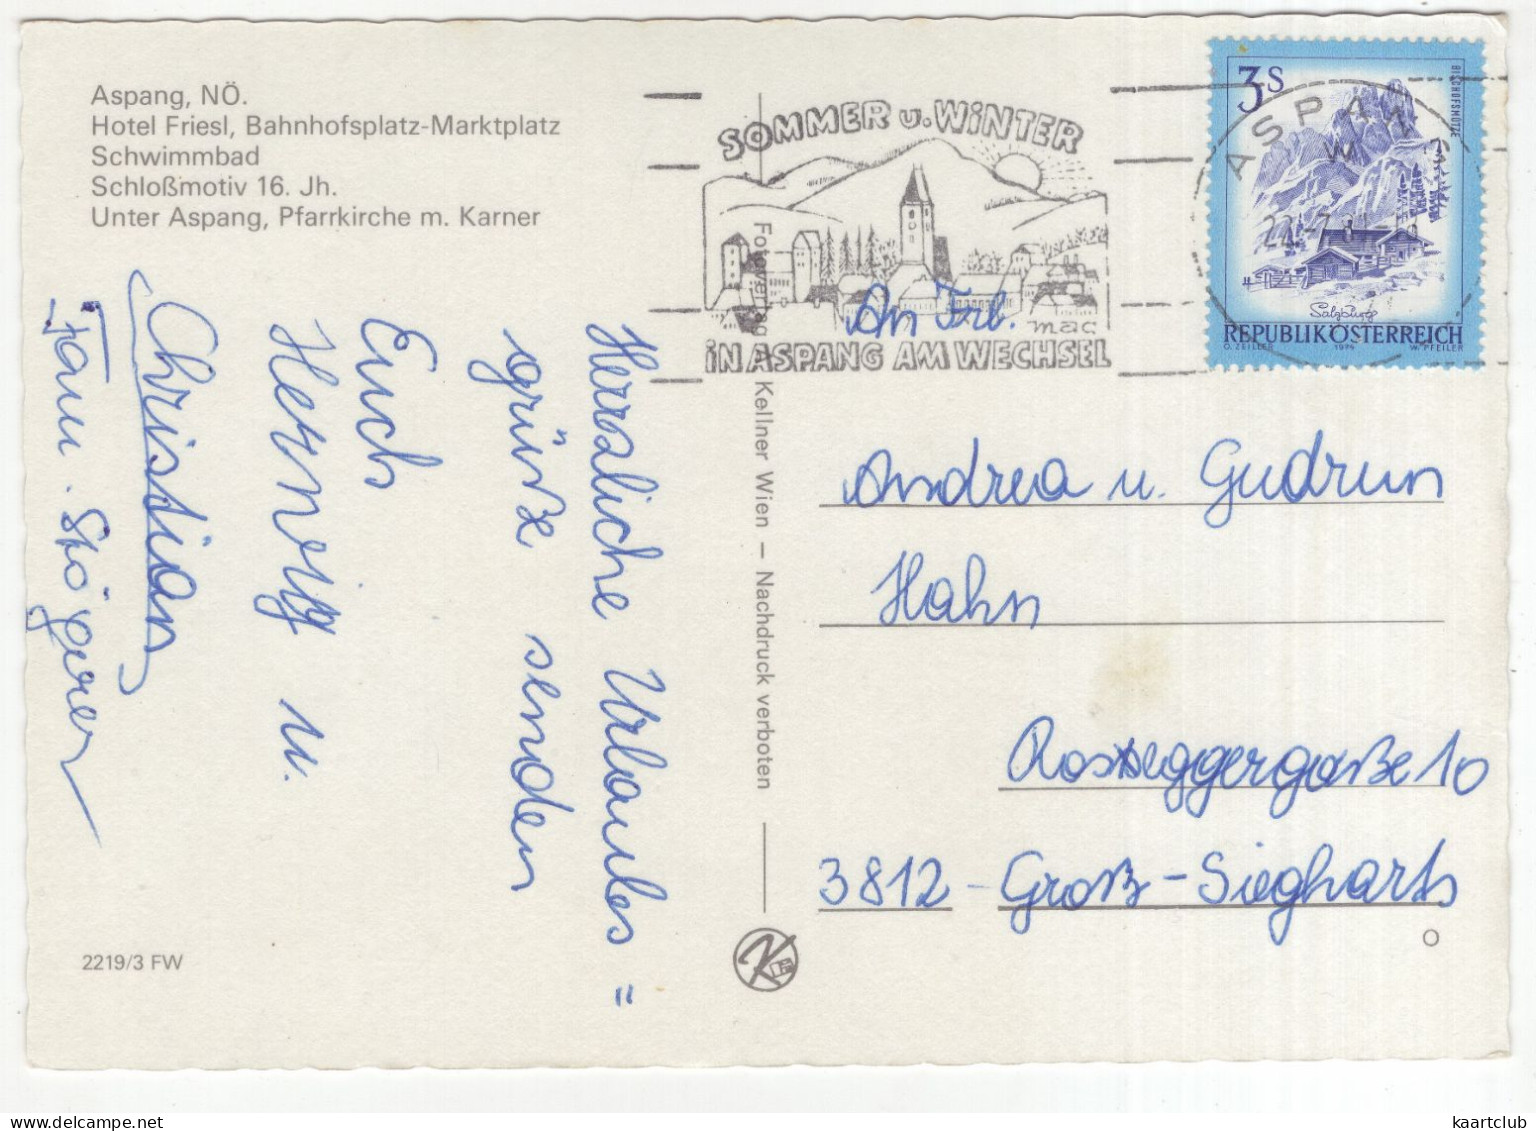 Aspang, NÖ.
Hotel Friesl, Bahnhofsplatz-Marktplatz
Schwimmbad
Schloßmotiv 16. Jh.
Unter Aspang, Pfarrkirche m. Karner
Herzliche Urlaubs=
grüße senden
Euch
Herwig u.
Christian
Fam. Stögerer
2219/3 FW
Fotoverlag A. Kellner Wien — Nachdruck verboten
K
SOMMER u. WiNTER
mac
iN ASPANG AM WECHSEL
ASPANG
W
22.-7.81
3S
BISCHOFSMÜTZE
Salzburg
REPUBLIK ÖSTERREICH
O. ZEILLER 1974 W. PFEILER
An Frl.
Andrea u. Gudrun
Hahn
Roseggergaße 10
3812 - Groß-Siegharts
kaartclub